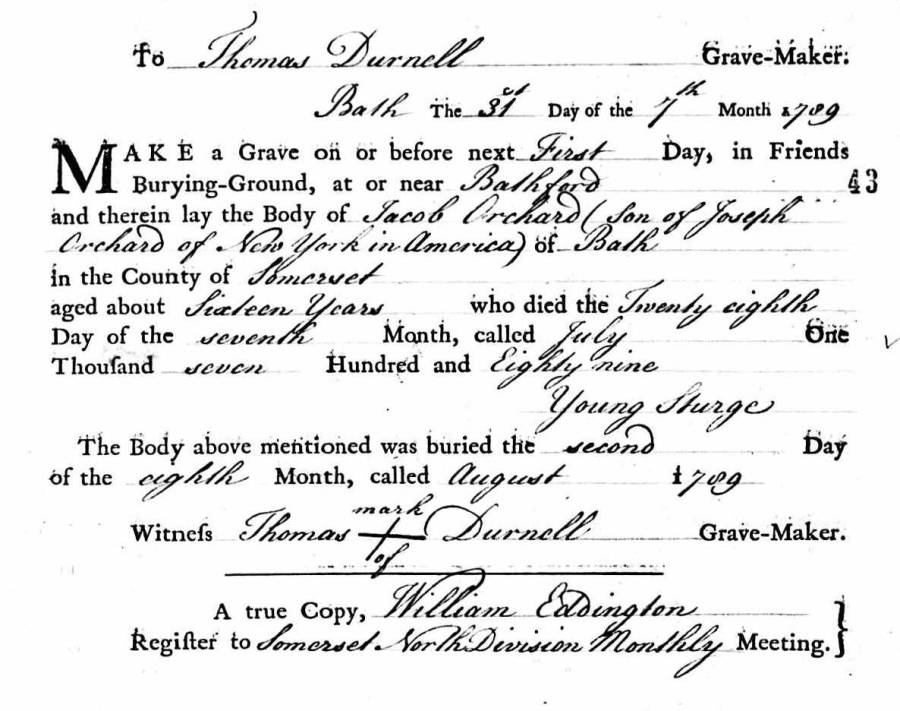 To Thomas Durnell Grave-Maker:
Bath The 31st Day of the 7th Month 1789
MAKE a Grave on or before next First Day, in Friends
Burying-Ground, at or near Bathford 43
and therein lay the Body of Jacob Orchard (Son of Joseph
Orchard of New York in America) of Bath
in the County of Somerset
aged about Sixteen Years who died the Twenty eighth
Day of the seventh Month, called July One
Thouſand seven Hundred and Eighty nine
Young Sturge
The Body above mentioned was buried the second Day
of the eighth Month, called August 1789
mark
Witneſs Thomas + Durnell Grave-Maker.
of
A true Copy, William Eddington
Regiſter to Somerset North Division Monthly Meeting.}